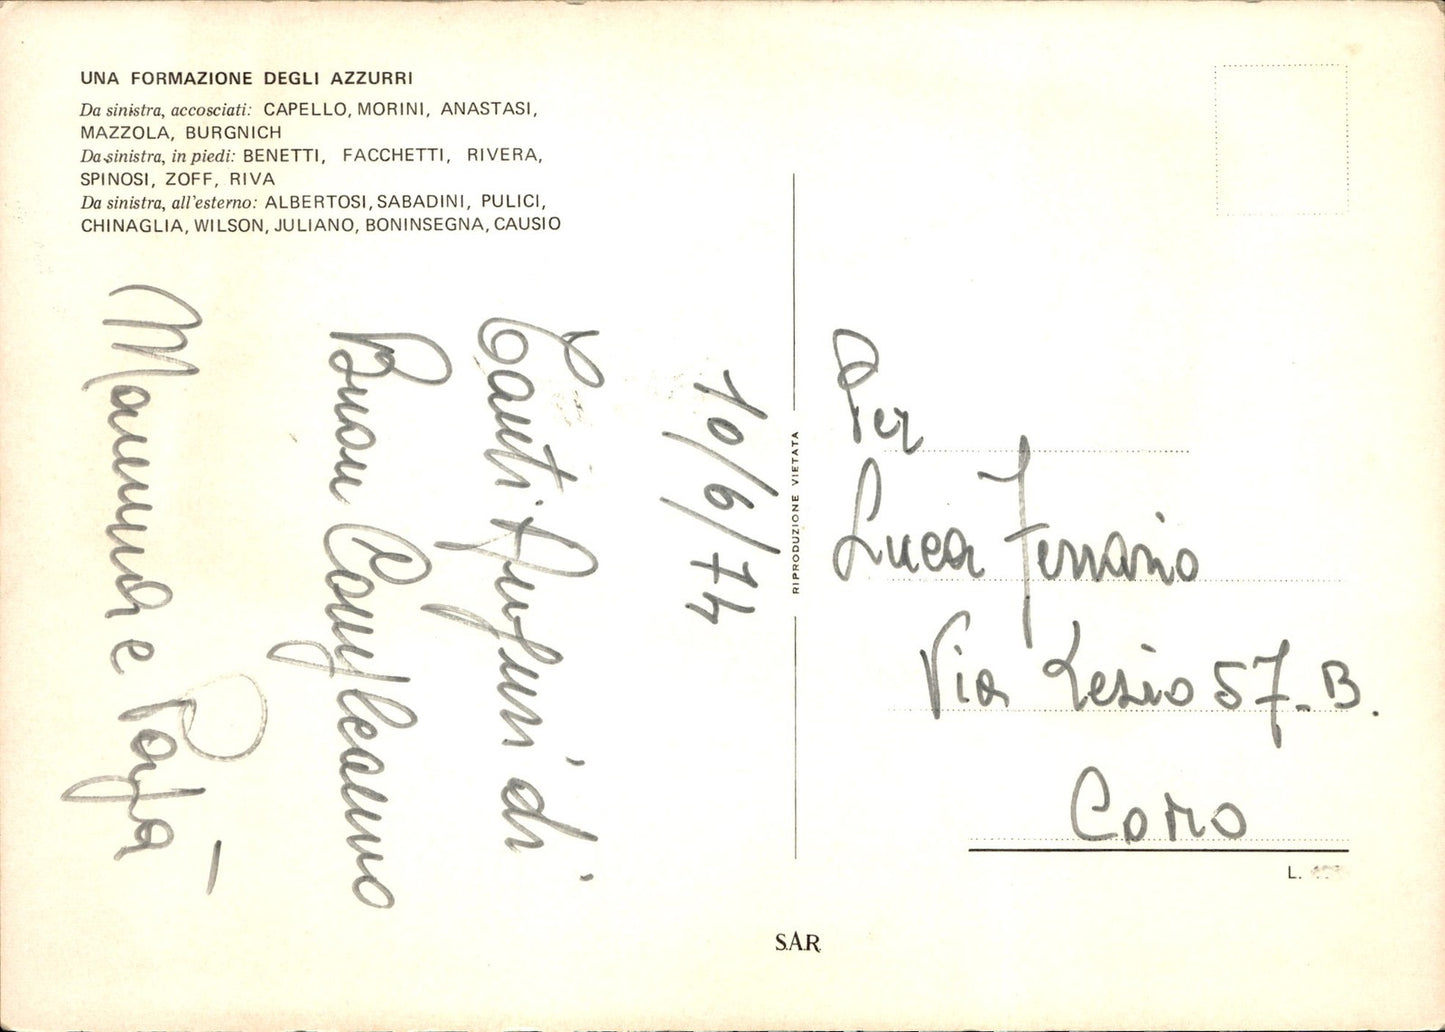 UNA FORMAZIONE DEGLI AZZURRI
Da sinistra, accosciati: CAPELLO, MORINI, ANASTASI,
MAZZOLA, BURGNICH
Da sinistra, in piedi: BENETTI, FACCHETTI, RIVERA,
SPINOSI, ZOFF, RIVA
Da sinistra, all'esterno: ALBERTOSI, SABADINI, PULICI,
CHINAGLIA, WILSON, JULIANO, BONINSEGNA, CAUSIO
10/6/74
Tanti Auguri di
Buon Compleanno
Mamma e Papà
RIPRODUZIONE VIETATA
Per
Luca Ferrario
Via 57-B.
L.
S.A.R